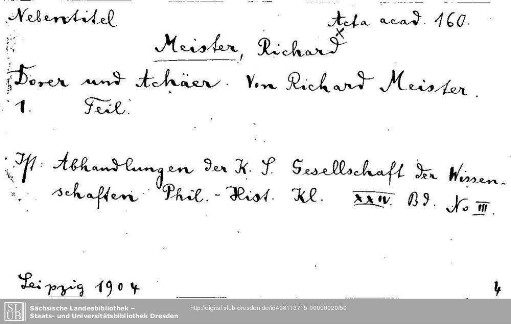 Nebentitel Acta acad. 160.
Meister, Richard
Dorer und Achäer. Von Richard Meister.
1. Teil.
Ist: Abhandlungen der K. S. Gesellschaft der Wissen-
schaften Phil.-Hist. Kl. XXIV. Bd. No III.
Leipzig 1904 4
SLUB
Sächsische Landesbibliothek –
Staats- und Universitätsbibliothek Dresden